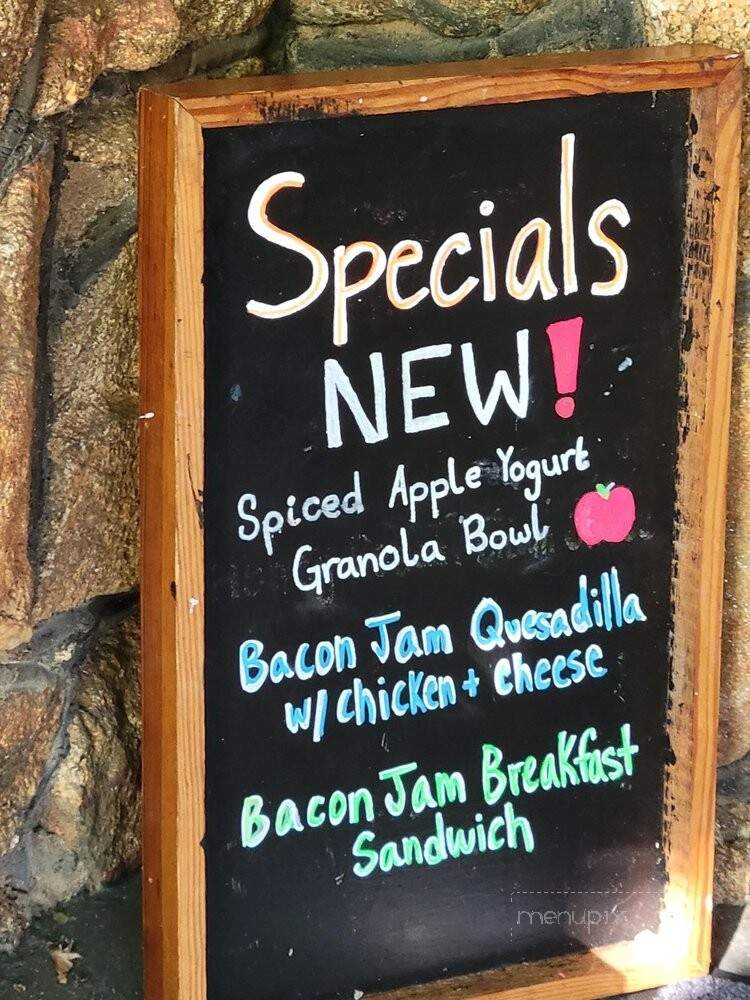 Specials
NEW!
Spiced Apple Yogurt
Granola Bowl
Bacon Jam Quesadilla
w/ chicken + cheese
Bacon Jam Breakfast
Sandwich
menupix